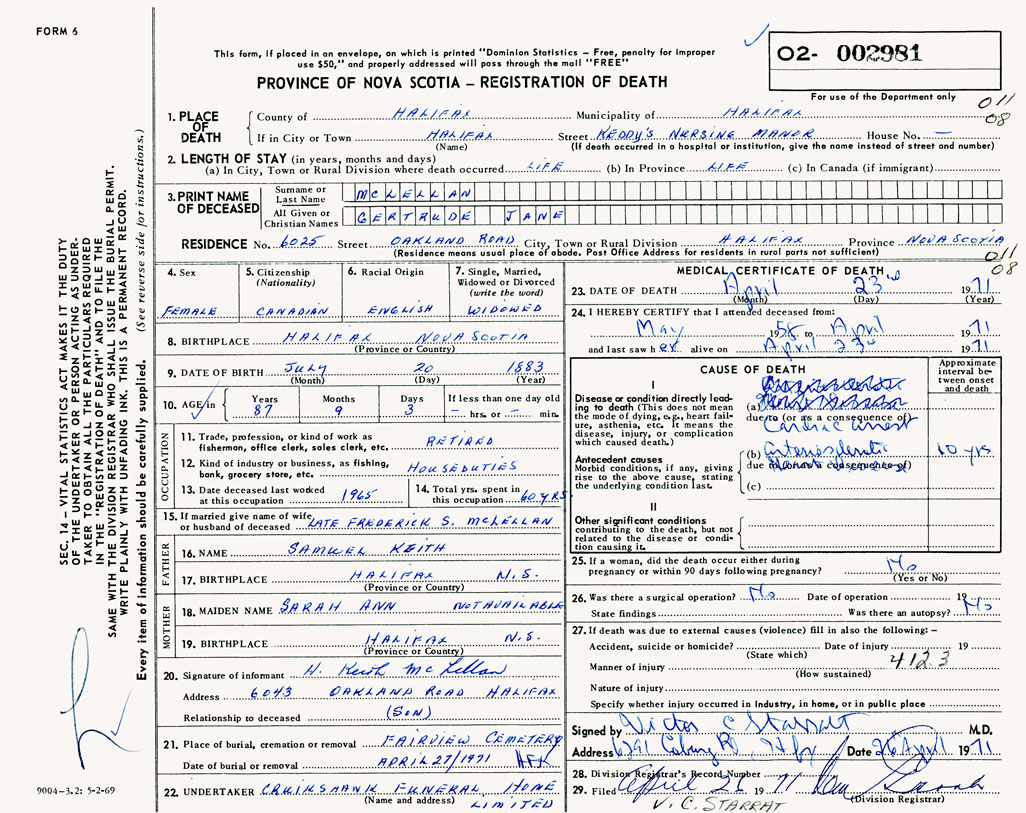 FORM 6
This form, if placed in an envelope, on which is printed "Dominion Statistics – Free, penalty for improper
use $50," and properly addressed will pass through the mail "FREE"
PROVINCE OF NOVA SCOTIA – REGISTRATION OF DEATH
02- 002981
For use of the Department only
011
08
SEC. 14 – VITAL STATISTICS ACT MAKES IT THE DUTY
OF THE UNDERTAKER OR PERSON ACTING AS UNDER-
TAKER TO OBTAIN ALL THE PARTICULARS REQUIRED
IN THE "REGISTRATION OF DEATH" AND TO FILE THE
SAME WITH THE DIVISION REGISTRAR WHO SHALL ISSUE THE BURIAL PERMIT.
WRITE PLAINLY WITH UNFADING INK. THIS IS A PERMANENT RECORD.
Every item of information should be carefully supplied. (See reverse side for instructions.)
1. PLACE OF DEATH County of HALIFAX Municipality of HALIFAX
If in City or Town HALIFAX Street KEDDY'S NURSING MANOR House No. —
(Name) (If death occurred in a hospital or institution, give the name instead of street and number)
2. LENGTH OF STAY (in years, months and days)
(a) In City, Town or Rural Division where death occurred LIFE (b) In Province LIFE (c) In Canada (if immigrant)
3. PRINT NAME OF DECEASED Surname or Last Name MCLELLAN
All Given or Christian Names GERTRUDE JANE
RESIDENCE No. 6025 Street OAKLAND ROAD City, Town or Rural Division HALIFAX Province NOVA SCOTIA
(Residence means usual place of abode. Post Office Address for residents in rural parts not sufficient)
011
08
4. Sex 5. Citizenship (Nationality) 6. Racial Origin 7. Single, Married, Widowed or Divorced (write the word)
FEMALE CANADIAN ENGLISH WIDOWED
8. BIRTHPLACE HALIFAX NOVA SCOTIA
(Province or Country)
9. DATE OF BIRTH JULY 20 1883
(Month) (Day) (Year)
10. AGE in Years Months Days If less than one day old
87 9 3 — hrs. or — min.
OCCUPATION
11. Trade, profession, or kind of work as fisherman, office clerk, sales clerk, etc. RETIRED
12. Kind of industry or business, as fishing, bank, grocery store, etc. HOUSEDUTIES
13. Date deceased last worked at this occupation 1965
14. Total yrs. spent in this occupation 60 YRS
15. If married give name of wife or husband of deceased LATE FREDERICK S. MCLELLAN
FATHER
16. NAME SAMUEL KEITH
17. BIRTHPLACE HALIFAX N.S.
(Province or Country)
MOTHER
18. MAIDEN NAME SARAH ANN NOT AVAILABLE
19. BIRTHPLACE HALIFAX N.S.
(Province or Country)
20. Signature of informant H. Keith McLellan
Address 6043 OAKLAND ROAD HALIFAX
Relationship to deceased (SON)
21. Place of burial, cremation or removal FAIRVIEW CEMETERY
Date of burial or removal APRIL 27/1971 HFX
22. UNDERTAKER CRUIKSHANK FUNERAL HOME
(Name and address) LIMITED
9004-3.2: 5-2-69
MEDICAL CERTIFICATE OF DEATH
23. DATE OF DEATH April 23rd 1971
(Month) (Day) (Year)
24. I HEREBY CERTIFY that I attended deceased from:
May 1958 to April 1971
and last saw her alive on April 23rd 1971
CAUSE OF DEATH
Approximate interval between onset and death
I
Disease or condition directly lead-
ing to death (This does not mean
the mode of dying, e.g., heart fail-
ure, asthenia, etc. It means the
disease, injury, or complication
which caused death.)
(a)
due to (or as a consequence of)
Cardiac arrest
Antecedent causes
Morbid conditions, if any, giving
rise to the above cause, stating
the underlying condition last.
(b) Arteriosclerotic 10 yrs
due to (or as a consequence of)
(c)
II
Other significant conditions
contributing to the death, but not
related to the disease or condi-
tion causing it.
25. If a woman, did the death occur either during
pregnancy or within 90 days following pregnancy? No
(Yes or No)
26. Was there a surgical operation? No Date of operation 19
State findings Was there an autopsy? No
27. If death was due to external causes (violence) fill in also the following: –
Accident, suicide or homicide? Date of injury 19
(State which) 412.3
Manner of injury
(How sustained)
Nature of injury
Specify whether injury occurred in industry, in home, or in public place
Signed by Victor C Starratt M.D.
Address 6291 Coburg Rd Hfx Date 26 April 1971
28. Division Registrar's Record Number
29. Filed April 26 1971
(Division Registrar)
V. C. STARRAT